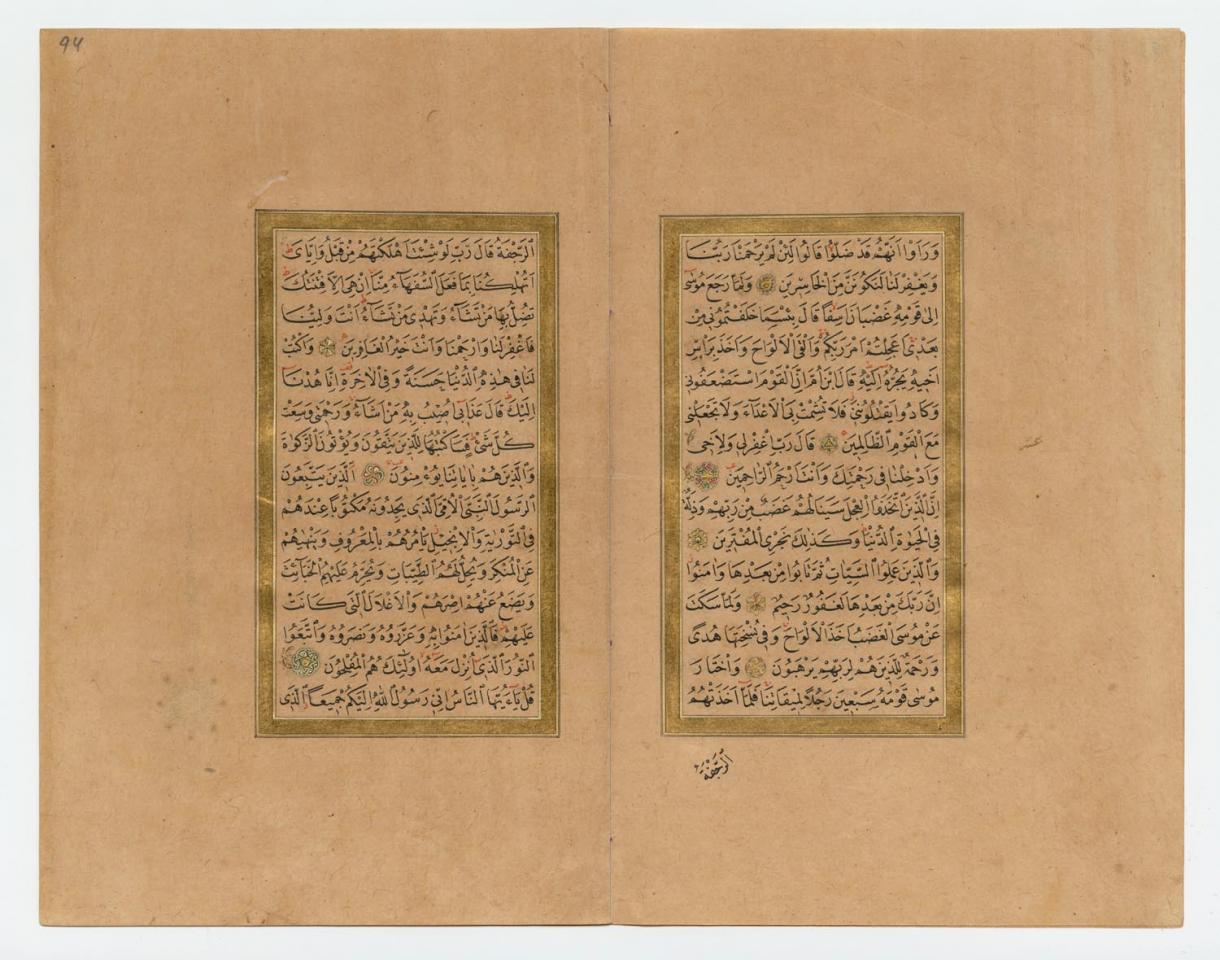 وَرَاَوْا اَنَّهُمْ قَدْ ضَلُّوا قَالُوا لَئِنْ لَمْ يَرْحَمْنَا رَبُّنَا
وَيَغْفِرْ لَنَا لَنَكُونَنَّ مِنَ الْخَاسِرِينَ وَلَمَّا رَجَعَ مُوسٰى
اِلٰى قَوْمِهِ غَضْبَانَ اَسِفًا قَالَ بِئْسَمَا خَلَفْتُمُونِى مِنْ
بَعْدِى اَعَجِلْتُمْ اَمْرَ رَبِّكُمْ وَاَلْقَى الْاَلْوَاحَ وَاَخَذَ بِرَاْسِ
اَخِيهِ يَجُرُّهُ اِلَيْهِ قَالَ ابْنَ اُمَّ اِنَّ الْقَوْمَ اسْتَضْعَفُونِى
وَكَادُوا يَقْتُلُونَنِى فَلَا تُشْمِتْ بِىَ الْاَعْدَاءَ وَلَا تَجْعَلْنِى
مَعَ الْقَوْمِ الظَّالِمِينَ قَالَ رَبِّ اغْفِرْ لِى وَلِاَخِى
وَاَدْخِلْنَا فِى رَحْمَتِكَ وَاَنْتَ اَرْحَمُ الرَّاحِمِينَ
اِنَّ الَّذِينَ اتَّخَذُوا الْعِجْلَ سَيَنَالُهُمْ غَضَبٌ مِنْ رَبِّهِمْ وَذِلَّةٌ
فِى الْحَيٰوةِ الدُّنْيَا وَكَذٰلِكَ نَجْزِى الْمُفْتَرِينَ
وَالَّذِينَ عَمِلُوا السَّيِّاٰتِ ثُمَّ تَابُوا مِنْ بَعْدِهَا وَاٰمَنُوا
اِنَّ رَبَّكَ مِنْ بَعْدِهَا لَغَفُورٌ رَحِيمٌ وَلَمَّا سَكَتَ
عَنْ مُوسَى الْغَضَبُ اَخَذَ الْاَلْوَاحَ وَفِى نُسْخَتِهَا هُدًى
وَرَحْمَةٌ لِلَّذِينَ هُمْ لِرَبِّهِمْ يَرْهَبُونَ وَاخْتَارَ
مُوسٰى قَوْمَهُ سَبْعِينَ رَجُلًا لِمِيقَاتِنَا فَلَمَّا اَخَذَتْهُمُ
الرَّجْفَةُ
94
الرَّجْفَةُ قَالَ رَبِّ لَوْ شِئْتَ اَهْلَكْتَهُمْ مِنْ قَبْلُ وَاِيَّاىَ
اَتُهْلِكُنَا بِمَا فَعَلَ السُّفَهَاءُ مِنَّا اِنْ هِىَ اِلَّا فِتْنَتُكَ
تُضِلُّ بِهَا مَنْ تَشَاءُ وَتَهْدِى مَنْ تَشَاءُ اَنْتَ وَلِيُّنَا
فَاغْفِرْ لَنَا وَارْحَمْنَا وَاَنْتَ خَيْرُ الْغَافِرِينَ وَاكْتُبْ
لَنَا فِى هٰذِهِ الدُّنْيَا حَسَنَةً وَفِى الْاٰخِرَةِ اِنَّا هُدْنَا
اِلَيْكَ قَالَ عَذَابِى اُصِيبُ بِهِ مَنْ اَشَاءُ وَرَحْمَتِى وَسِعَتْ
كُلَّ شَىْءٍ فَسَاَكْتُبُهَا لِلَّذِينَ يَتَّقُونَ وَيُؤْتُونَ الزَّكٰوةَ
وَالَّذِينَ هُمْ بِاٰيَاتِنَا يُؤْمِنُونَ اَلَّذِينَ يَتَّبِعُونَ
الرَّسُولَ النَّبِىَّ الْاُمِّىَّ الَّذِى يَجِدُونَهُ مَكْتُوبًا عِنْدَهُمْ
فِى التَّوْرٰيةِ وَالْاِنْجِيلِ يَاْمُرُهُمْ بِالْمَعْرُوفِ وَيَنْهٰيهُمْ
عَنِ الْمُنْكَرِ وَيُحِلُّ لَهُمُ الطَّيِّبَاتِ وَيُحَرِّمُ عَلَيْهِمُ الْخَبَائِثَ
وَيَضَعُ عَنْهُمْ اِصْرَهُمْ وَالْاَغْلَالَ الَّتِى كَانَتْ
عَلَيْهِمْ فَالَّذِينَ اٰمَنُوا بِهِ وَعَزَّرُوهُ وَنَصَرُوهُ وَاتَّبَعُوا
النُّورَ الَّذِى اُنْزِلَ مَعَهُ اُولٰئِكَ هُمُ الْمُفْلِحُونَ
قُلْ يَاءَيُّهَا النَّاسُ اِنِّى رَسُولُ اللّٰهِ اِلَيْكُمْ جَمِيعًا الَّذِى